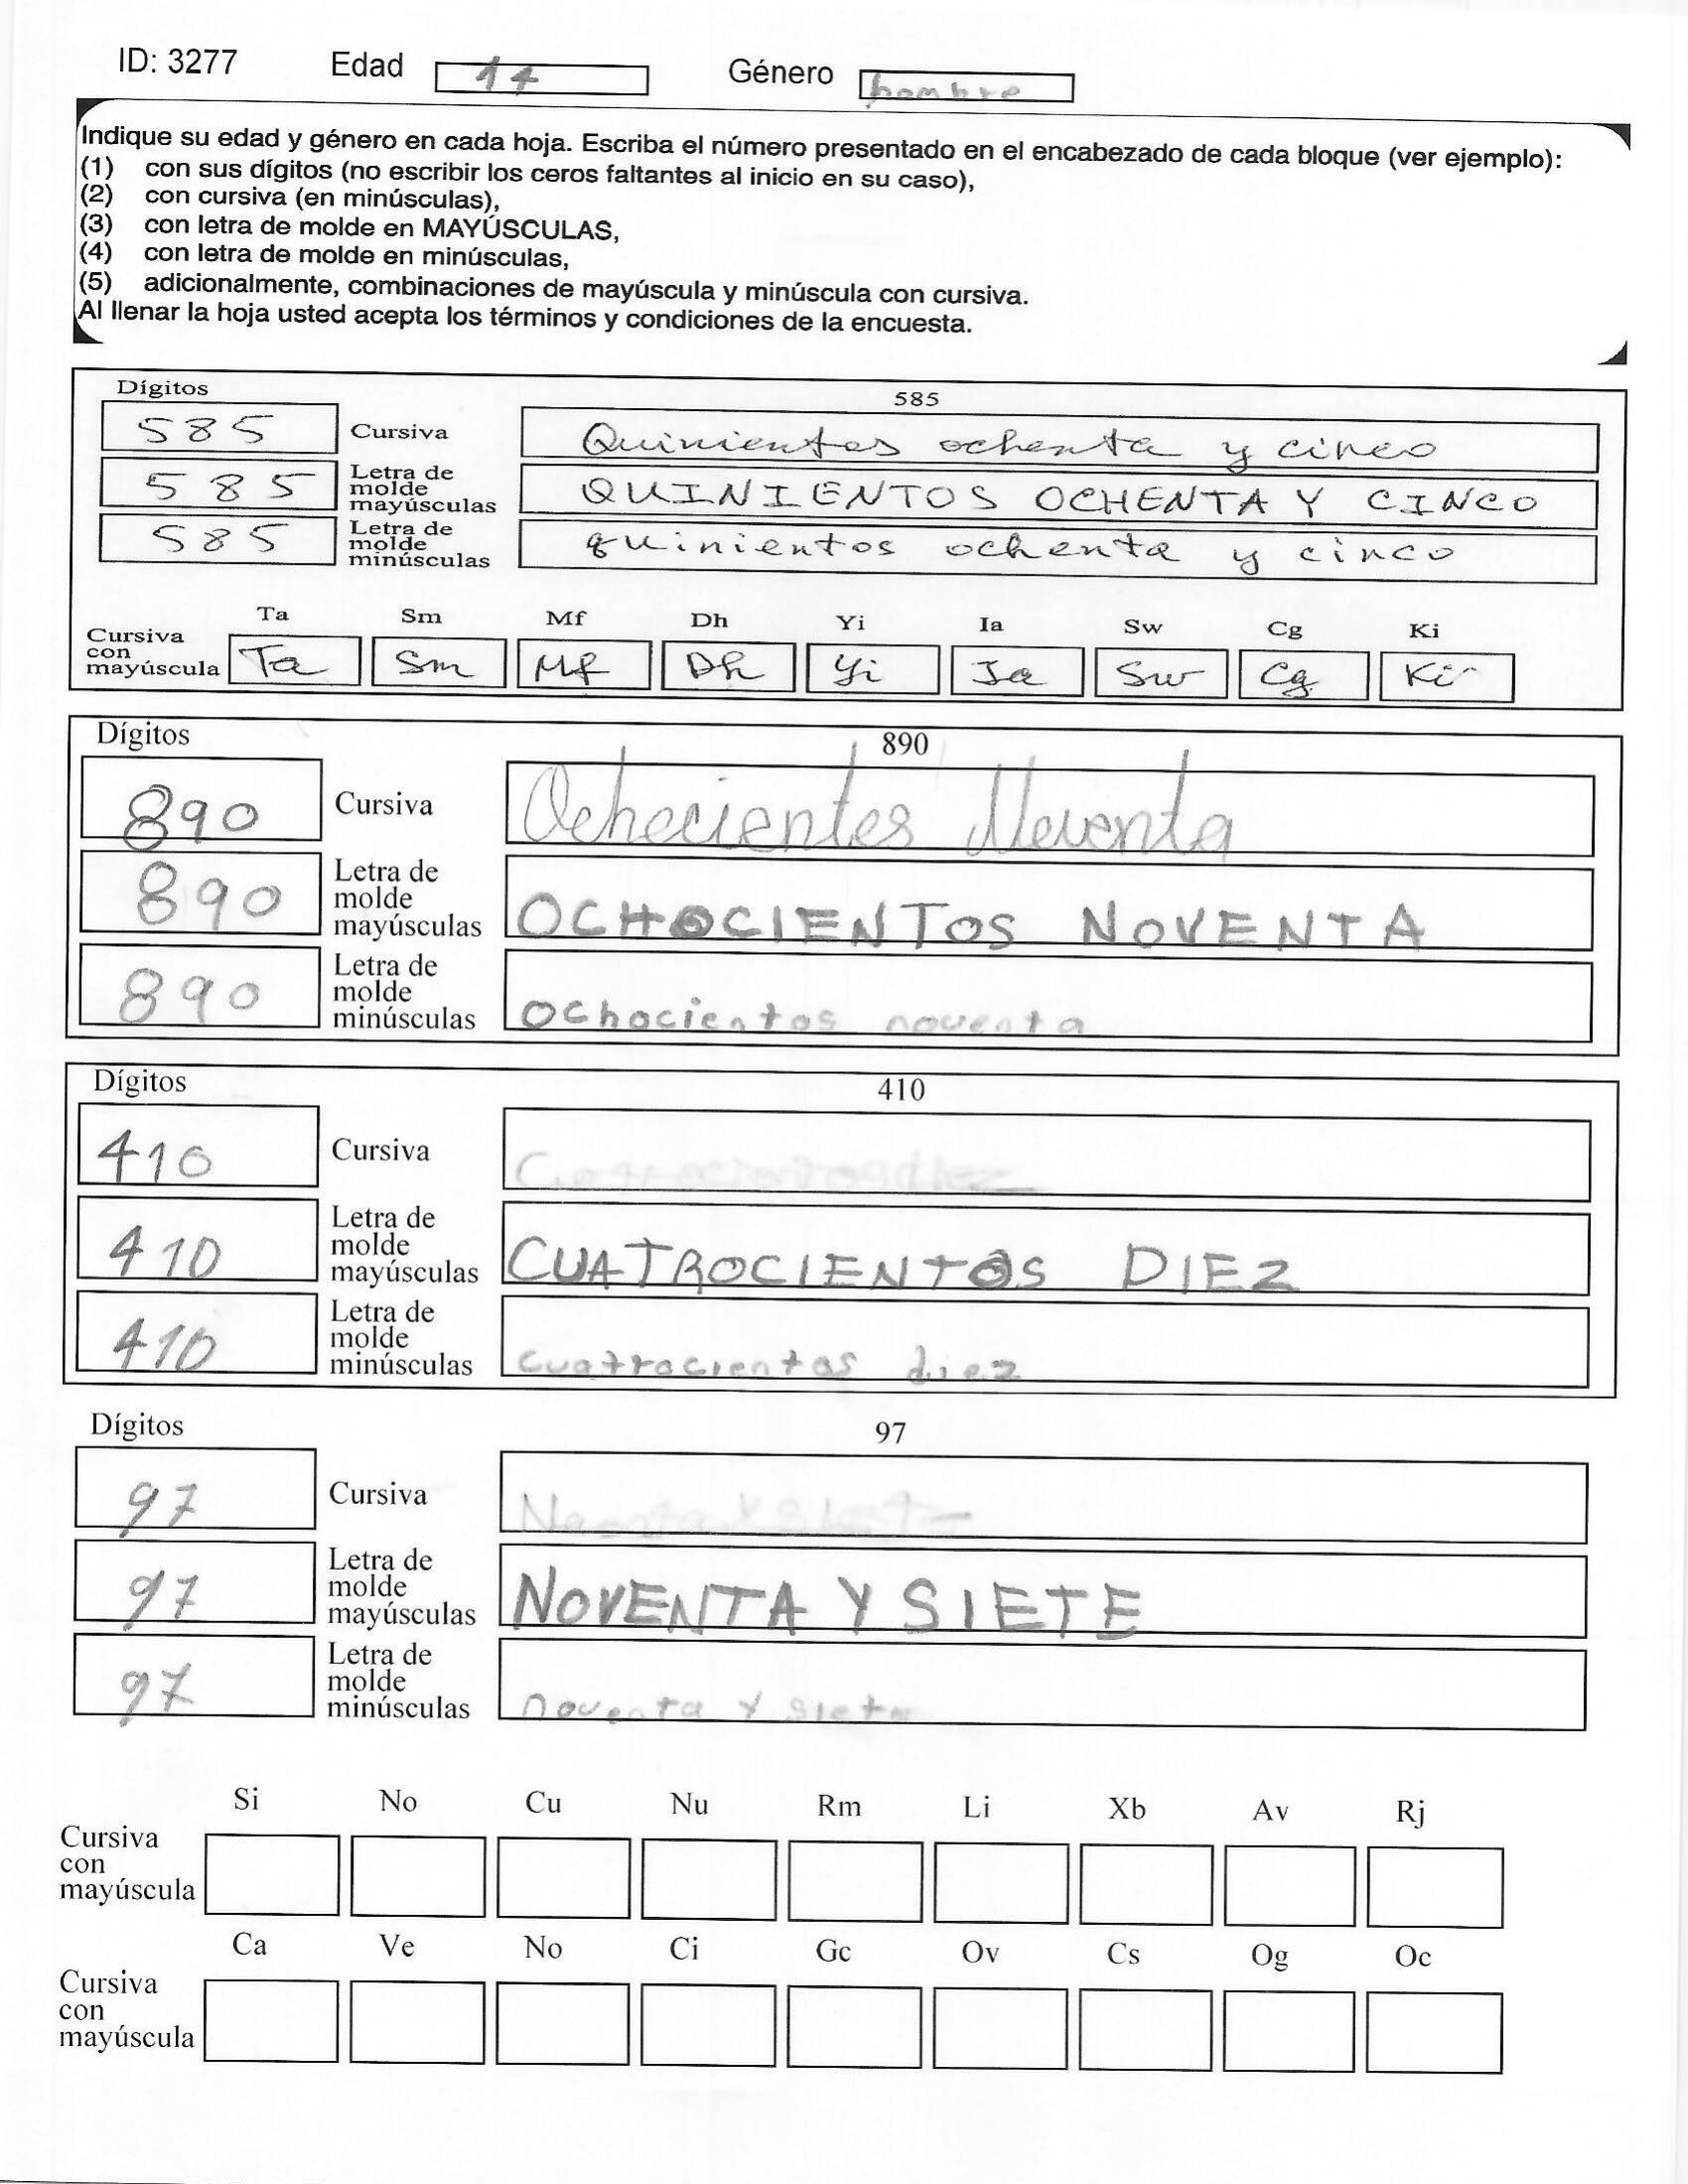 ID: 3277 Edad 14 Género hombre
Indique su edad y género en cada hoja. Escriba el número presentado en el encabezado de cada bloque (ver ejemplo):
(1) con sus dígitos (no escribir los ceros faltantes al inicio en su caso),
(2) con cursiva (en minúsculas),
(3) con letra de molde en MAYÚSCULAS,
(4) con letra de molde en minúsculas,
(5) adicionalmente, combinaciones de mayúscula y minúscula con cursiva.
Al llenar la hoja usted acepta los términos y condiciones de la encuesta.
Dígitos 585
585 Cursiva Quinientos ochenta y cinco
585 Letra de molde mayúsculas QUINIENTOS OCHENTA Y CINCO
585 Letra de molde minúsculas quinientos ochenta y cinco
Ta Sm Mf Dh Yi Ia Sw Cg Ki
Cursiva con mayúscula Ta Sm Mf Dh Yi Ia Sw Cg Ki
Dígitos 890
890 Cursiva Ochocientos Noventa
890 Letra de molde mayúsculas OCHOCIENTOS NOVENTA
890 Letra de molde minúsculas ochocientos noventa
Dígitos 410
410 Cursiva
410 Letra de molde mayúsculas CUATROCIENTOS DIEZ
410 Letra de molde minúsculas cuatrocientos diez
Dígitos 97
97 Cursiva
97 Letra de molde mayúsculas NOVENTA Y SIETE
97 Letra de molde minúsculas noventa y siete
Si No Cu Nu Rm Li Xb Av Rj
Cursiva con mayúscula
Ca Ve No Ci Gc Ov Cs Og Oc
Cursiva con mayúscula